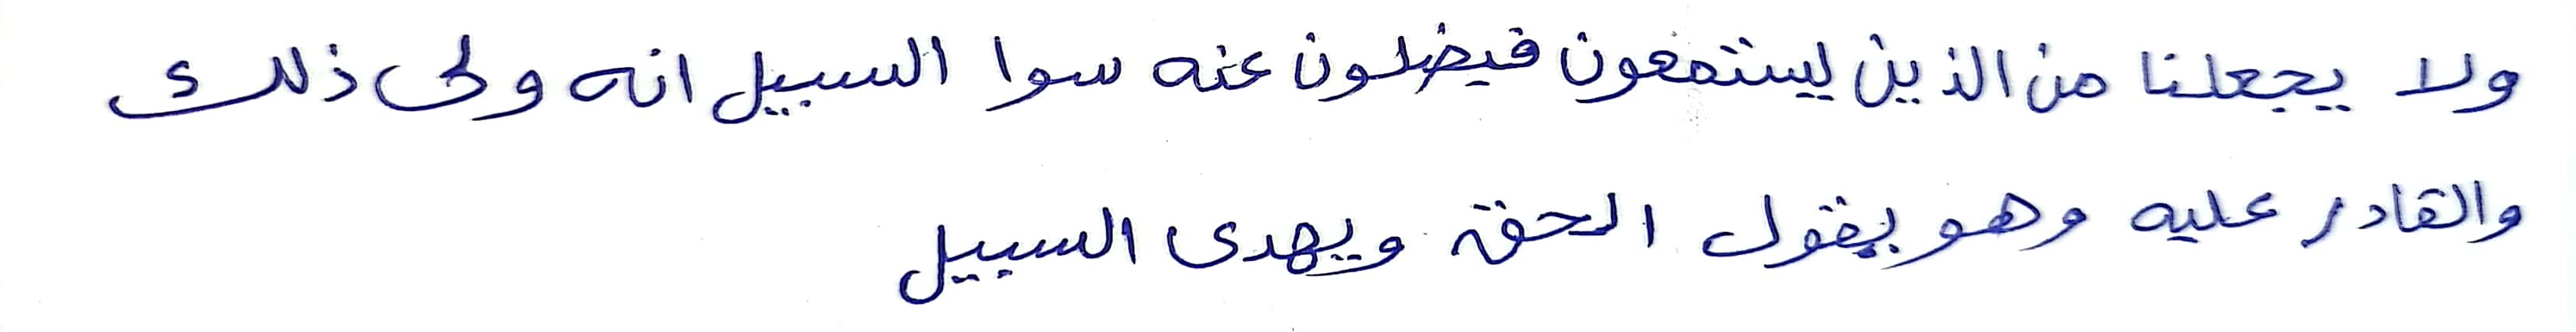 ولا يجعلنا من الذين ليستمعون فيضلون عنه سوا السبيل انه ولى ذلك
والقادر عليه وهو يقول الحق ويهدى السبيل